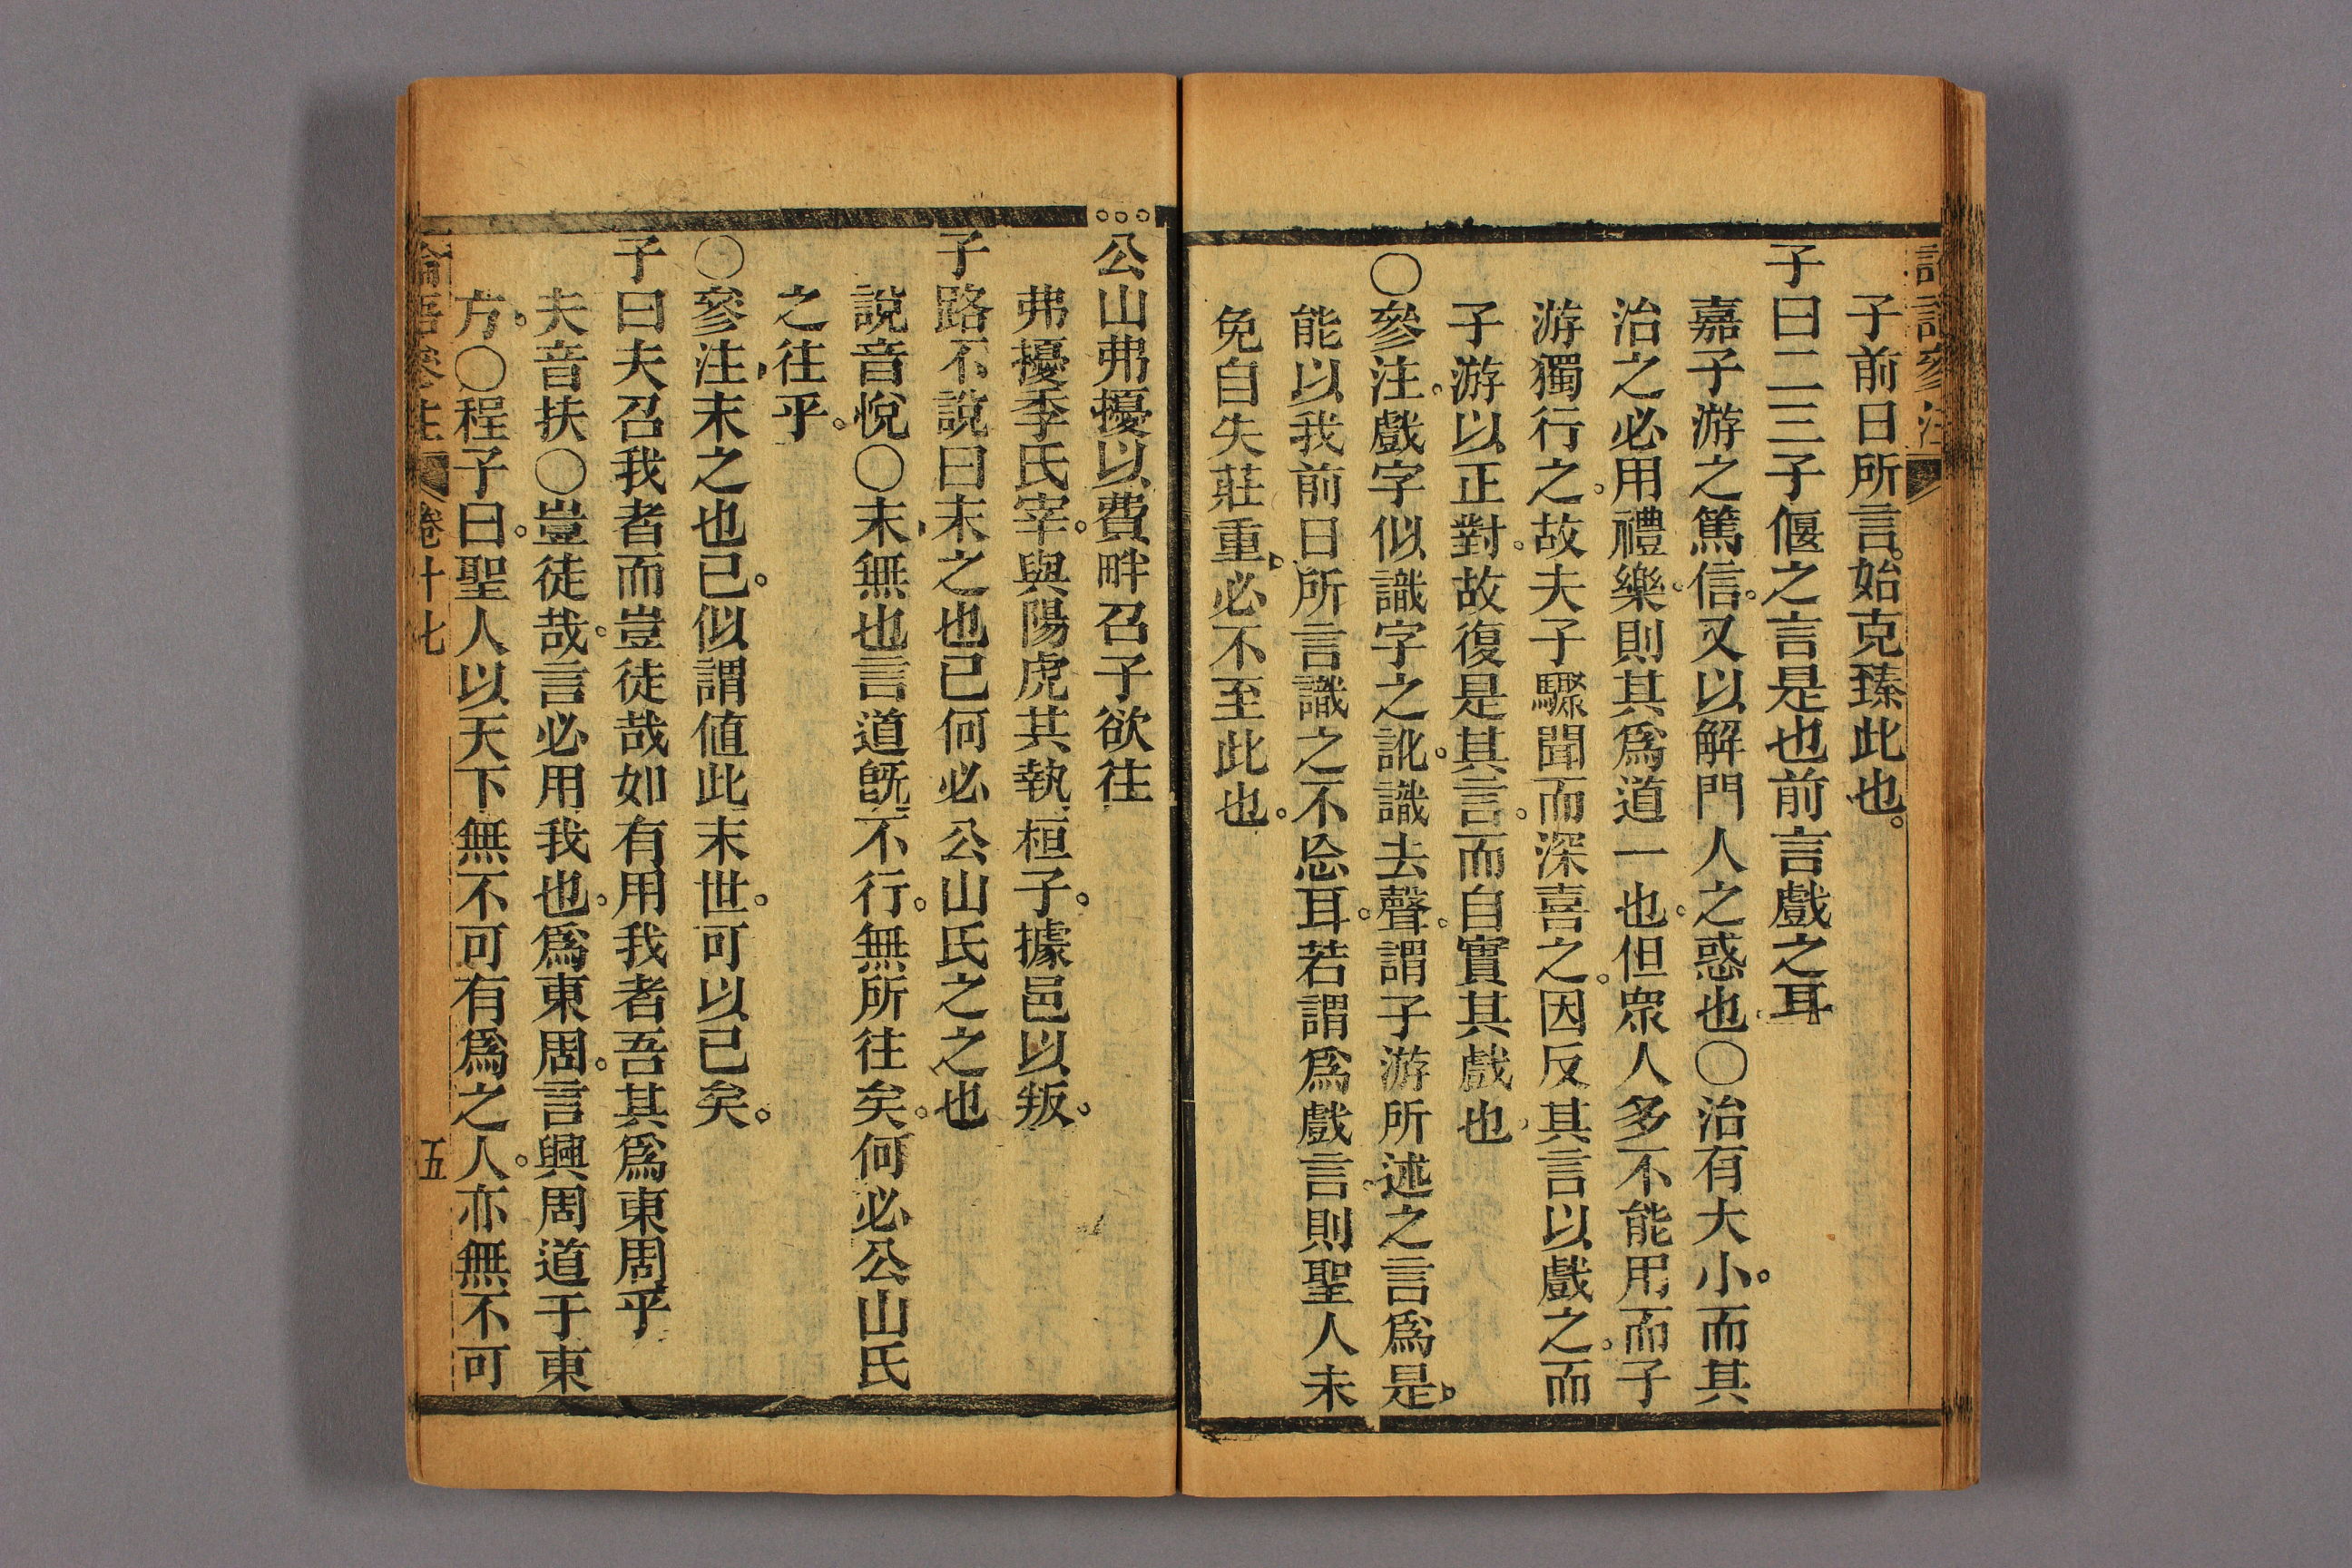 子前日所言。始克臻此也。
子曰二三子偃之言是也前言戲之耳
嘉子游之篤信。又以解門人之惑也〇治有大小。而其
治之必用禮樂。則其爲道一也。但衆人多不能用而子
游獨行之。故夫子驟聞而深喜之。因反其言以戲之。而
子游以正對。故復是其言。而自實其戲也
〇參注。戲字似識字之訛。識去聲。謂子游所述之言爲是。
能以我前日所言識之不忘耳。若謂爲戲言。則聖人未
免自失莊重。必不至此也。
公山弗擾以費畔召子欲往
弗擾季氏宰。與陽虎其執桓子。據邑以叛。
子路不說曰末之也已何必公山氏之之也
說音悅〇末無也言道旣不行。無所往矣。何必公山氏
之往乎。
〇參注末之也已。似謂値此末世。可以已矣。
子曰夫召我者而豈徒哉如有用我者吾其爲東周乎
夫音扶〇豈徒哉。言必用我也。爲東周。言興周道于東
方。〇程子曰。聖人以天下無不可有爲之人。亦無不可
論語參注 卷十七 五